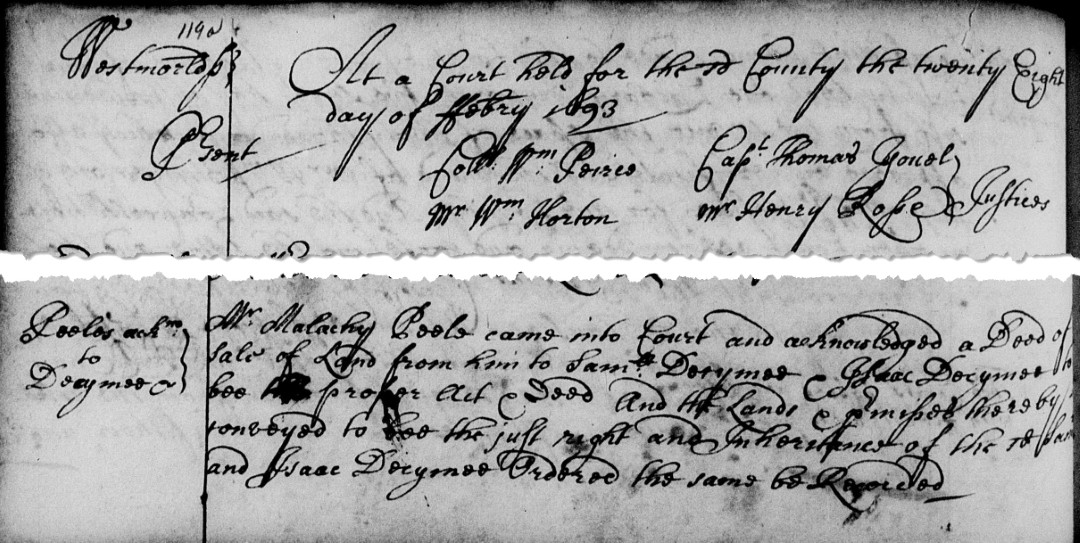 119a
Westmorlds
At a Court held for the sd County the twenty Eight
day of ffebry 1693
Psent
Coll. Wm. Peirce Capt. Thomas Youel
Mr Wm. Horton mr Henry Rosse Justices
Peeles ackmt.
to
Decymee
Mr. Malachy Peele came into Court and acknowledged a Deed of
sale of Land from him to Saml. Decymee & Isaac Decymee to
bee his proper Act & Deed And the Lands & pmisses thereby
conveyed to bee the just right and Inheritance of the sd Sam
and Isaac Decymee Ordered the same be Recorded